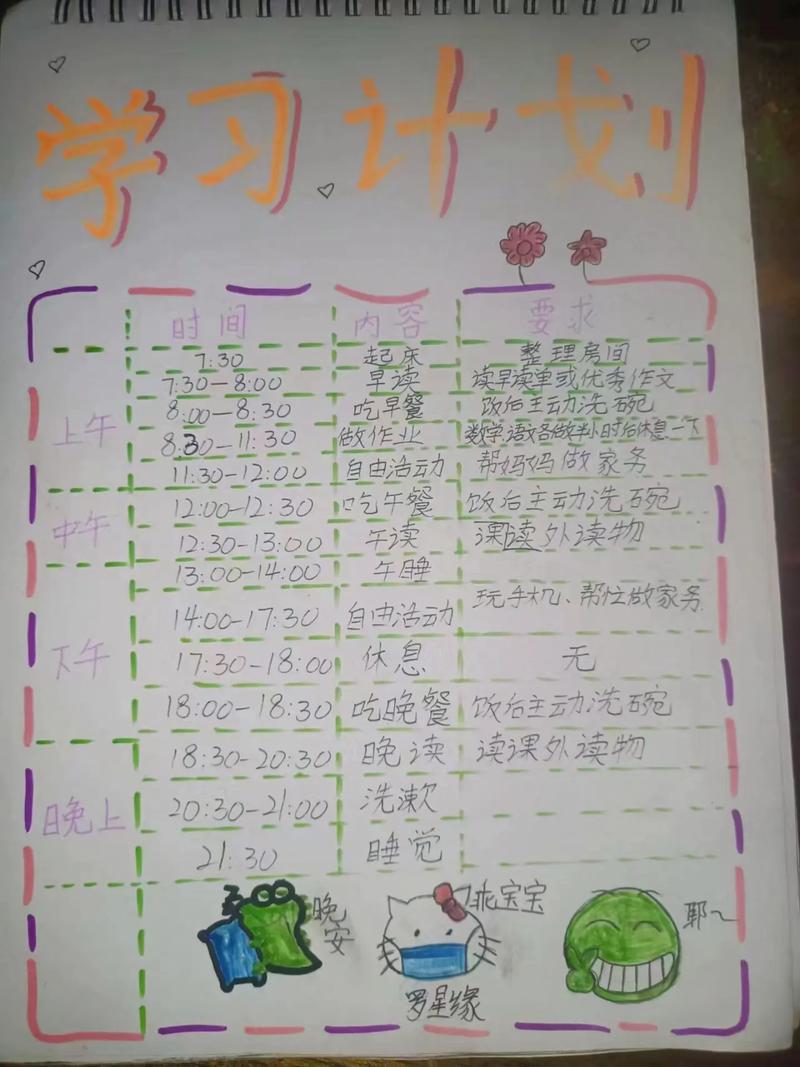 学习计划
时间 内容 要求
上午
7:30 起床 整理房间
7:30—8:00 早读 读早读单或优秀作文
8:00—8:30 吃早餐 饭后主动洗碗
8:30—11:30 做作业 数学、语文各做半小时后休息一下
11:30—12:00 自由活动 帮妈妈做家务
中午
12:00—12:30 吃午餐 饭后主动洗碗
12:30—13:00 午读 课读外读物
下午
13:00—14:00 午睡
14:00—17:30 自由活动 玩手机、帮忙做家务
17:30—18:00 休息 无
18:00—18:30 吃晚餐 饭后主动洗碗
晚上
18:30—20:30 晚读 读课外读物
20:30—21:00 洗漱
21:30 睡觉
晚安
乖宝宝
耶~
罗星缘